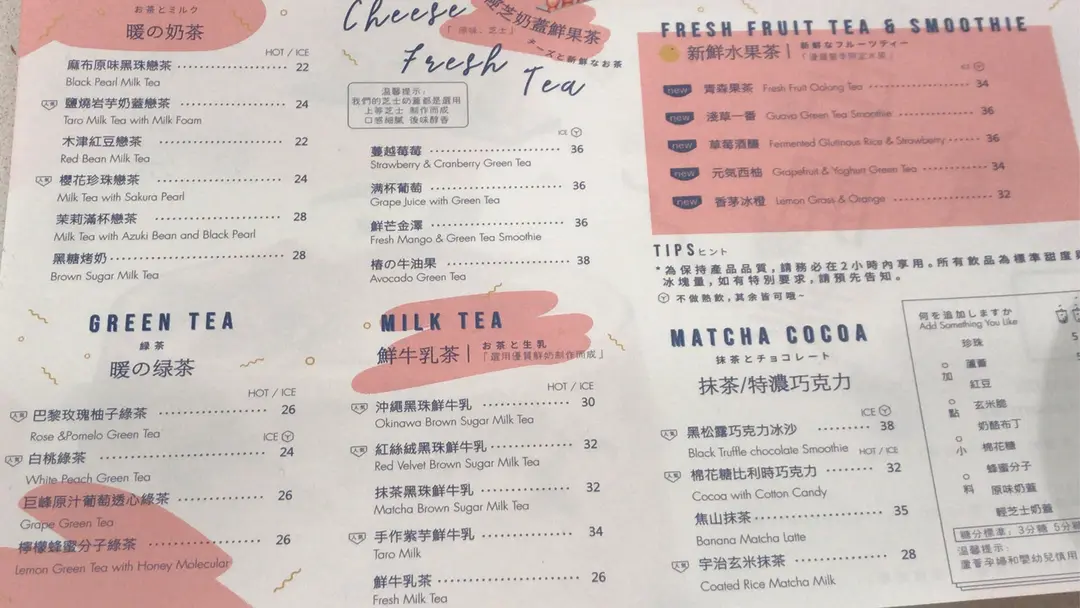 お茶とミルク
暖の奶茶
HOT / ICE
麻布原味黑珠戀茶 22
Black Pearl Milk Tea
人氣 鹽燒岩芋奶蓋戀茶 24
Taro Milk Tea with Milk Foam
木津紅豆戀茶 22
Red Bean Milk Tea
人氣 櫻花珍珠戀茶 24
Milk Tea with Sakura Pearl
茉莉滿杯戀茶 28
Milk Tea with Azuki Bean and Black Pearl
黑糖烤奶 28
Brown Sugar Milk Tea
GREEN TEA
緑茶
暖の绿茶
HOT / ICE
人氣 巴黎玫瑰柚子綠茶 26
Rose &Pomelo Green Tea
ICE
人氣 白桃綠茶 24
White Peach Green Tea
巨峰原汁葡萄透心綠茶 26
Grape Green Tea
檸檬蜂蜜分子綠茶 26
Lemon Green Tea with Honey Molecular
Cheese
芝奶蓋鮮果茶
「 原味、芝士」
チーズと新鮮なお茶
Fresh
Tea
温馨提示:
我們的芝士奶蓋都是選用
上等芝士 制作而成
口感細膩 後味醇香
ICE
蔓越莓莓 36
Strawberry & Cranberry Green Tea
满杯葡萄 36
Grape Juice with Green Tea
鮮芒金澤 36
Fresh Mango & Green Tea Smoothie
椿の牛油果 38
Avocado Green Tea
MILK TEA
鮮牛乳茶
お茶と生乳
「選用優質鮮奶制作而成」
HOT / ICE
人氣 沖繩黑珠鮮牛乳 30
Okinawa Brown Sugar Milk Tea
人氣 紅絲絨黑珠鮮牛乳 32
Red Velvet Brown Sugar Milk Tea
抹茶黑珠鮮牛乳 32
Matcha Brown Sugar Milk Tea
人氣 手作紫芋鮮牛乳 34
Taro Milk
鮮牛乳茶 26
Fresh Milk Tea
FRESH FRUIT TEA & SMOOTHIE
新鮮水果茶
新鮮なフルーツティー
ICE
new 青森果茶 Fresh Fruit Oolong Tea 34
new 淺草一番 Guava Green Tea Smoothie 36
new 草莓酒釀 Fermented Glutinous Rice & Strawberry 36
new 元気西柚 Grapefruit & Yoghurt Green Tea 34
new 香茅冰橙 Lemon Grass & Orange 32
TIPS ヒント
*為保持產品品質,請務必在2小時內享用。所有飲品為標準甜度
冰塊量,如有特別要求,請預先告知。
不做熱飲,其余皆可哦~
MATCHA COCOA
抹茶とチョコレート
抹茶/特濃巧克力
ICE
人氣 黑松露巧克力冰沙 38
Black Truffle chocolate Smoothie
HOT / ICE
人氣 棉花糖比利時巧克力 32
Cocoa with Cotton Candy
焦山抹茶 35
Banana Matcha Latte
人氣 宇治玄米抹茶 28
Coated Rice Matcha Milk
何を追加しますか
Add Something You Like
加點小料
珍珠 5
蘆薈
紅豆
玄米脆
奶酪布丁
棉花糖
蜂蜜分子
原味奶蓋
輕芝士奶蓋
糖分標準: 3分糖 5分糖
温馨提示:
蘆薈孕婦和嬰幼兒慎用